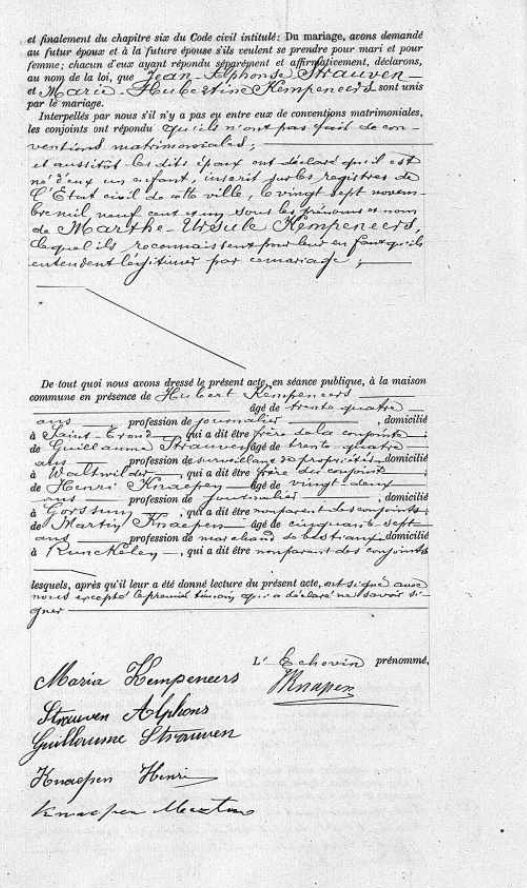 et finalement du chapitre six du Code civil intitulé: Du mariage, avons demandé
au futur époux et à la future épouse s'ils veulent se prendre pour mari et pour
femme; chacun d'eux ayant répondu séparément et affirmativement, déclarons,
au nom de la loi, que Jean-Alphonse Strauven
et Marie-Hubertine Kempeneers sont unis
par le mariage.
Interpellés par nous s'il n'y a pas eu entre eux de conventions matrimoniales,
les conjoints ont répondu qu'ils n'ont pas fait de con-
ventions matrimoniales;
et aussitôt les dits époux ont déclaré qu'il est
né d'eux un enfant, inscrit sur les registres de
l'Etat civil de cette ville, le vingt sept novem-
bre mil neuf cent et un sous les prénoms et nom
de Marthe-Ursule Kempeneers,
lequel ils reconnaissent pour leur enfant qu'ils
entendent légitimer par ce mariage;
De tout quoi nous avons dressé le présent acte, en séance publique, à la maison
commune en présence de Hubert Kempeneers
âgé de trente quatre
ans profession de journalier, domicilié
à Saint-Trond, qui a dit être frère de la conjointe;
de Guillaume Strauven âgé de trente quatre
ans profession de surveillant de propriétés domicilié
à Waltwilder, qui a dit être frère du conjoint;
de Henri Knaepen âgé de vingt deux
ans profession de journalier, domicilié
à Gorssum, qui a dit être non parent des conjoints;
de Martin Knaepen âgé de cinquante sept
ans profession de marchand de bestiaux domicilié
à Runckelen, qui a dit être non parent des conjoints
lesquels, après qu'il leur a été donné lecture du présent acte, ont signé avec
nous excepté le premier témoin qui a déclaré ne savoir si-
gner
L' Echevin prénommé,
Maria Kempeneers
Strauven Alphons
Guillaume Strauven
Knaepen Henri
Knaepen Martin